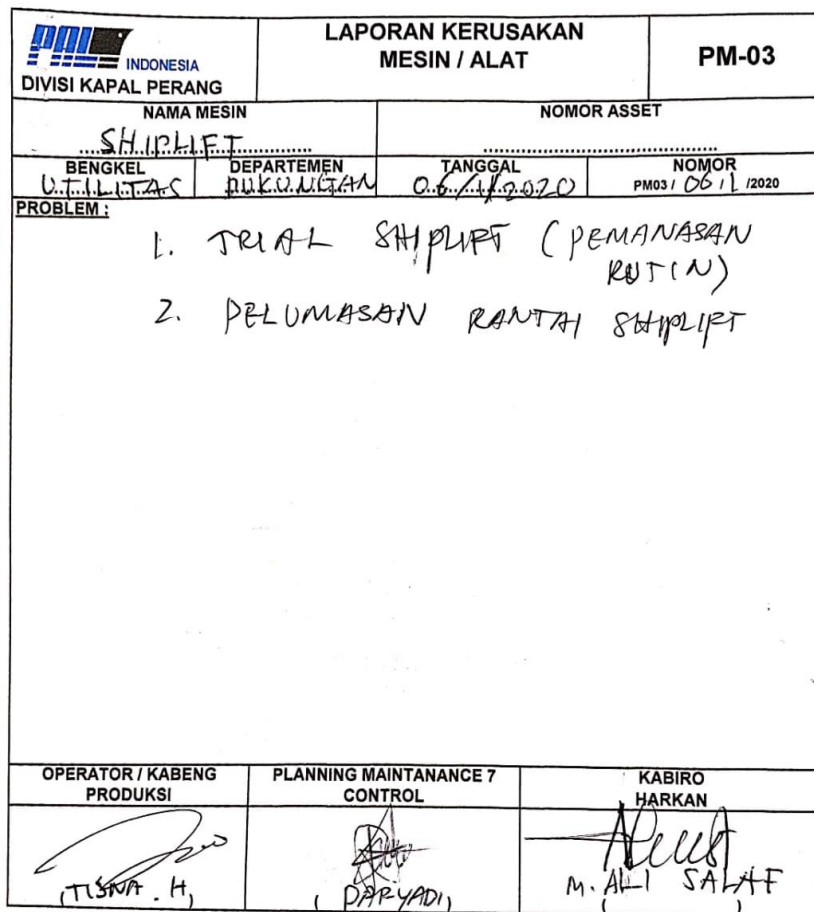 PAL INDONESIA
DIVISI KAPAL PERANG
LAPORAN KERUSAKAN
MESIN / ALAT
PM-03
NAMA MESIN
SHIPLIFT
NOMOR ASSET
BENGKEL
UTILITAS
DEPARTEMEN
DUKUNGAN
TANGGAL
06/1/2020
NOMOR
PM03 / 06 / 1 /2020
PROBLEM :
1. TRIAL SHIPLIFT (PEMANASAN
RUTIN)
2. PELUMASAN RANTAI SHIPLIFT
OPERATOR / KABENG
PRODUKSI
PLANNING MAINTANANCE 7
CONTROL
KABIRO
HARKAN
(TISNA . H)
( DARYADI )
M. ALI SALAF
( )